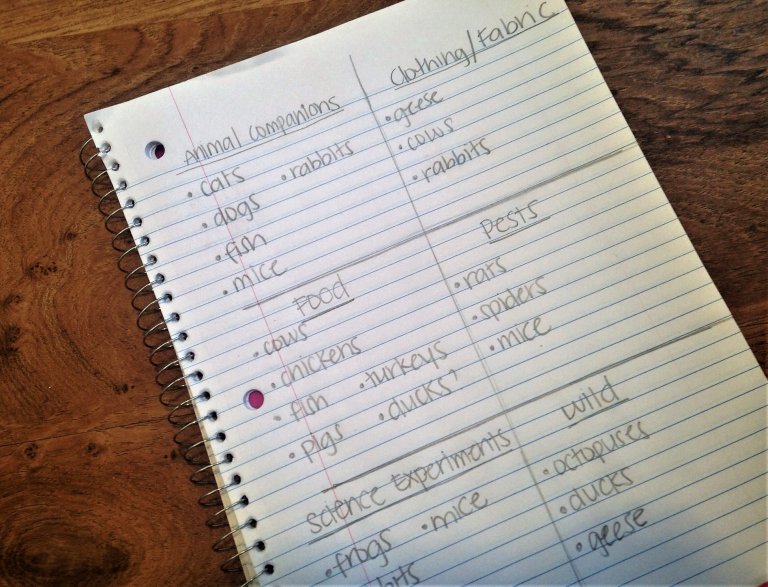 Animal Companions
• cats • rabbits
• dogs
• fish
• mice
Clothing/Fabric
• geese
• cows
• rabbits
Food
• cows
• chickens
• fish • turkeys
• pigs • ducks
Pests
• rats
• spiders
• mice
Science Experiments
• frogs • mice
Wild
• octopuses
• ducks
• geese